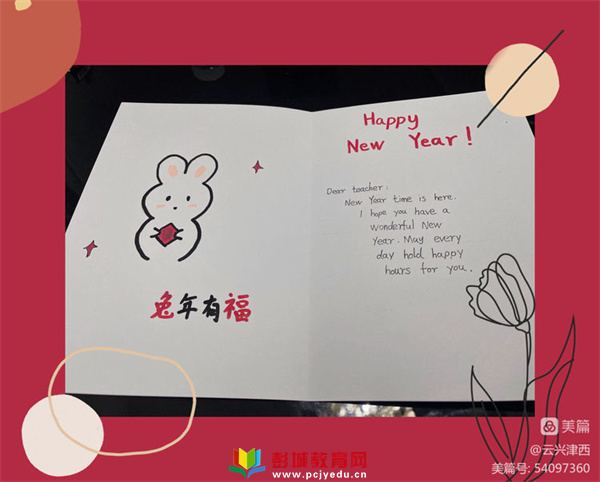 兔年有福
Happy
New Year!
Dear teacher:
New Year time is here.
I hope you have a
wonderful New
Year. May every
day hold happy
hours for you.
美篇
@云兴津西
美篇号: 54097360
彭城教育网
www.pcjyedu.cn